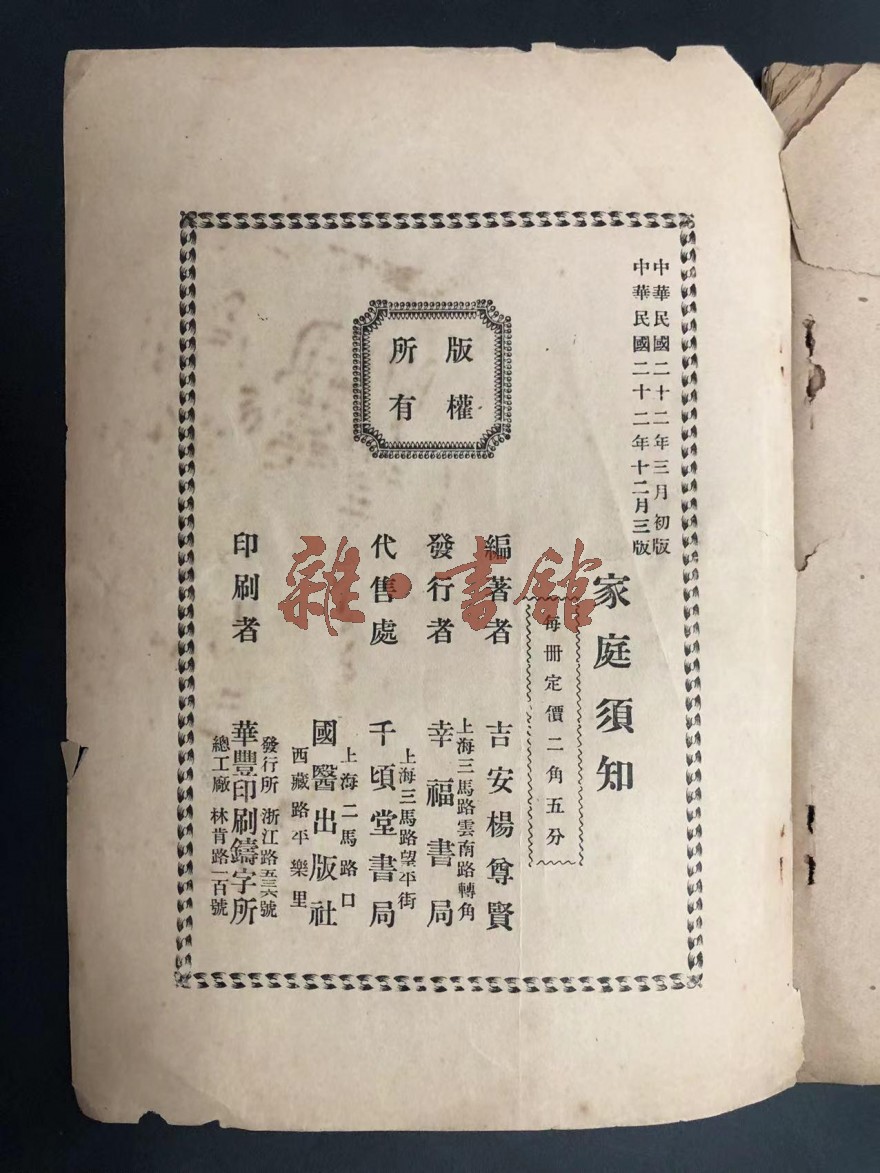 中華民國二十二年三月初版
中華民國二十二年十二月三版
家庭須知
每冊定價二角五分
版權
所有
編著者
吉安楊尊賢
發行者
上海三馬路雲南路轉角
幸福書局
代售處
上海三馬路望平街
千頃堂書局
上海二馬路口
國醫出版社
西藏路平樂里
印刷者
發行所 浙江路五三六號
華豐印刷鑄字所
總工廠 林肯路一百號
雜·書館